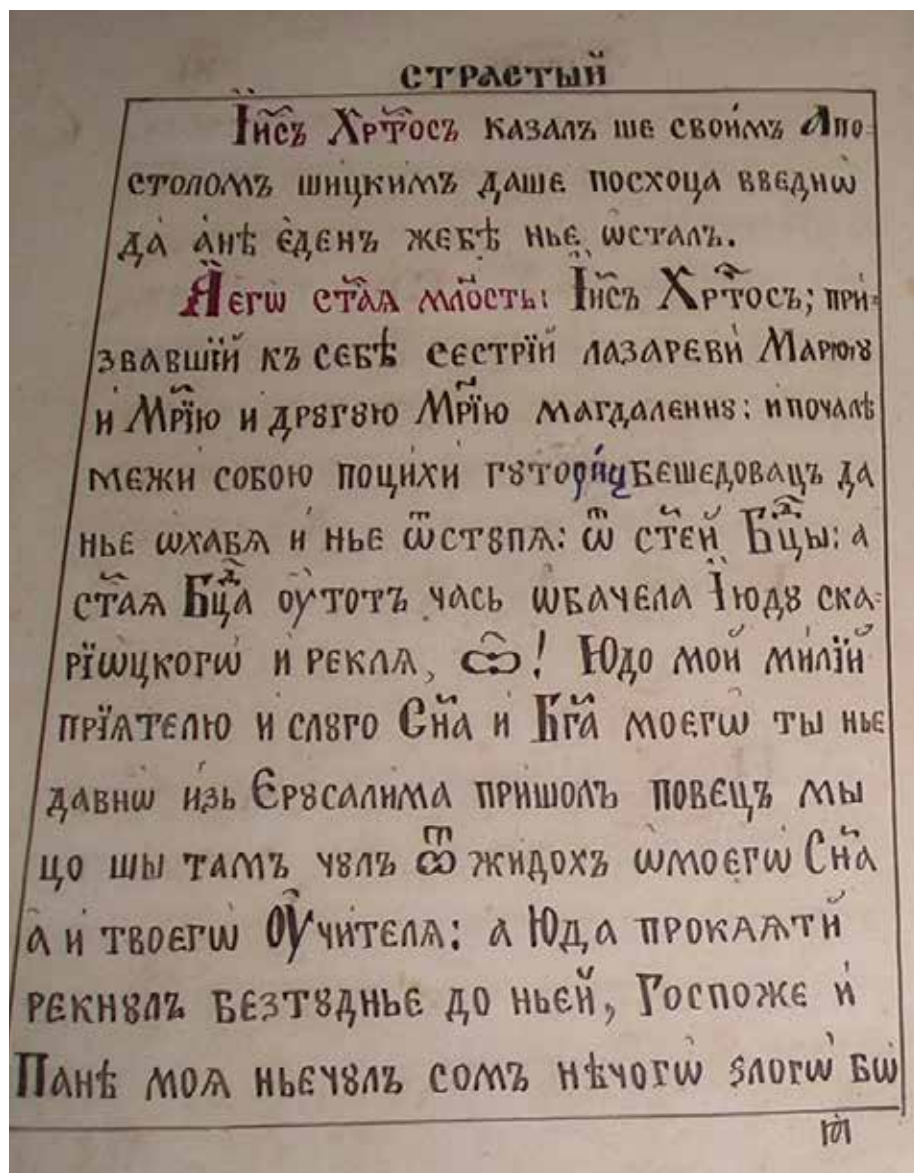 СТРАСТЫЙ
І҆и҃съ Хрⷭ҇тосъ казалъ ше своимъ Апо-
столомъ шицкимъ даше посхоца вѣеднѡ
да анѣ єденъ жебѣ нье ѡсталъ.
Аегѡ ст҃аѧ мл҃ость: І҆и҃съ Хр҃тосъ; при-
звавшїй къ себѣ сестрїй лазареви Марюꙋ
и Мр҃їю и дрꙋгꙋю Мр҃їю магдаленнꙋ: и почалѣ
межи собою поцихи гꙋториц бешедовацъ да
нье ѡхабѧ и нье ѿстꙋпѧ: ѿ ст҃ей Бц҃ы: а
ст҃аѧ Бц҃а оутотъ чась ѡбачела Їюдꙋ ска-
рїѡцкогѡ и реклѧ, ѽ! Юдо мой милїй
прїѧтелю и слꙋго Сн҃а и Бг҃а моегѡ ты нье
давнѡ изь Єрꙋсалима пришолъ повецъ мы
цо шы тамъ чꙋлъ ѿ жидохъ ѡмоегѡ Сн҃а
а и твоегѡ Оучителѧ: а Юда проклѧтй
рекнꙋлъ безтꙋднье до ньей, Госпоже и
Панѣ моѧ ньечꙋлъ сомъ нѣчогѡ ѕлогѡ бѡ